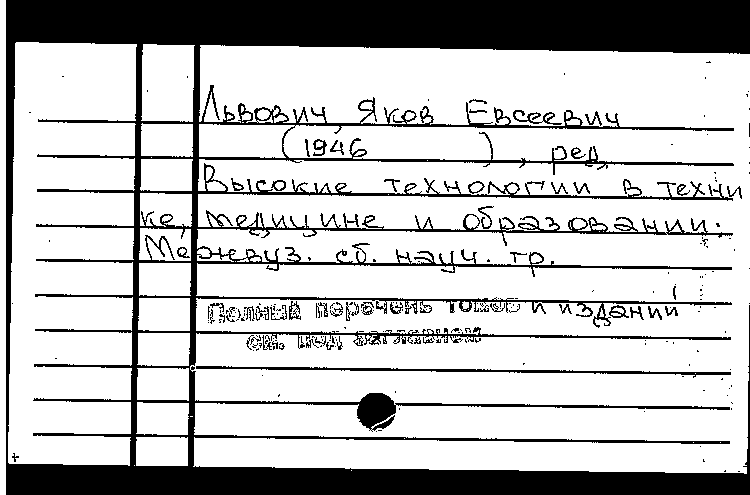 Львович, Яков Евсеевич
(1946 ), ред.
Высокие технологии в техни
ке, медицине и образовании:
Межвуз. сб. науч. тр.
Полный перечень томов и изданий
см. под заглавием